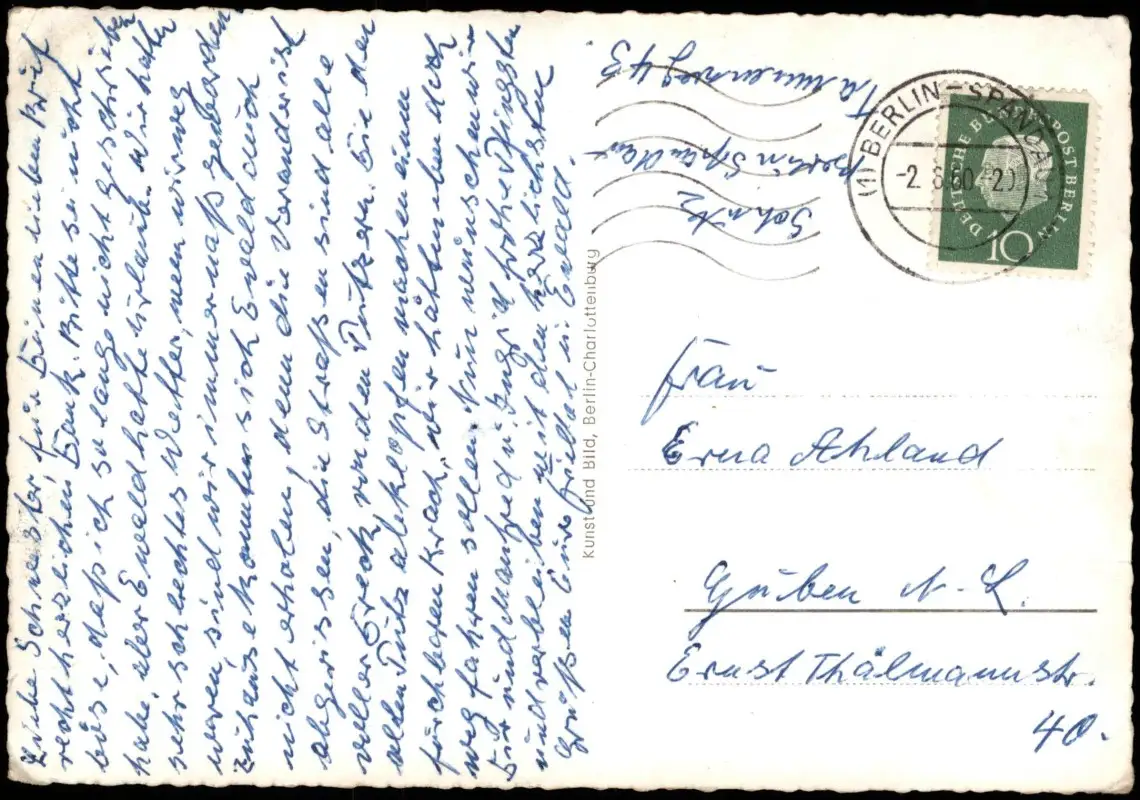 Liebe Schwester, für Deinen lieben Brief
recht herzlichen Dank. Bitte sei nicht
böse, daß ich so lange nicht geschrieben
habe, aber Ewald hatte Urlaub. Wir hatten
sehr schlechtes Wetter, wenn wir weg
waren, sind wir immer naß geworden.
Zuhause konnte sich Ewald auch
nicht erholen, denn die Veranda ist
abgerissen, die Straßen sind alle
voller Dreck von den Putzern. Die den
alten Putz abklopfen machen einen
fürchtbaren Krach, wir hätten ben doch
weg fahren sollen. Nun wünschen wir
Dir und Manfred u. Ingrid frohe Pfingsten
und verbleiben mit den herzlichsten
Grüßen Eure Friedel u. Ewald.
Schutz
Berlin Spandau
43
Kunst und Bild, Berlin-Charlottenburg
(1) BERLIN-SPANDAU
-2.6.60-20
DEUTSCHE BUNDESPOST BERLIN
10
Frau
Erna Ahland
Guben N-L.
Ernst Thälmannstr.
40.